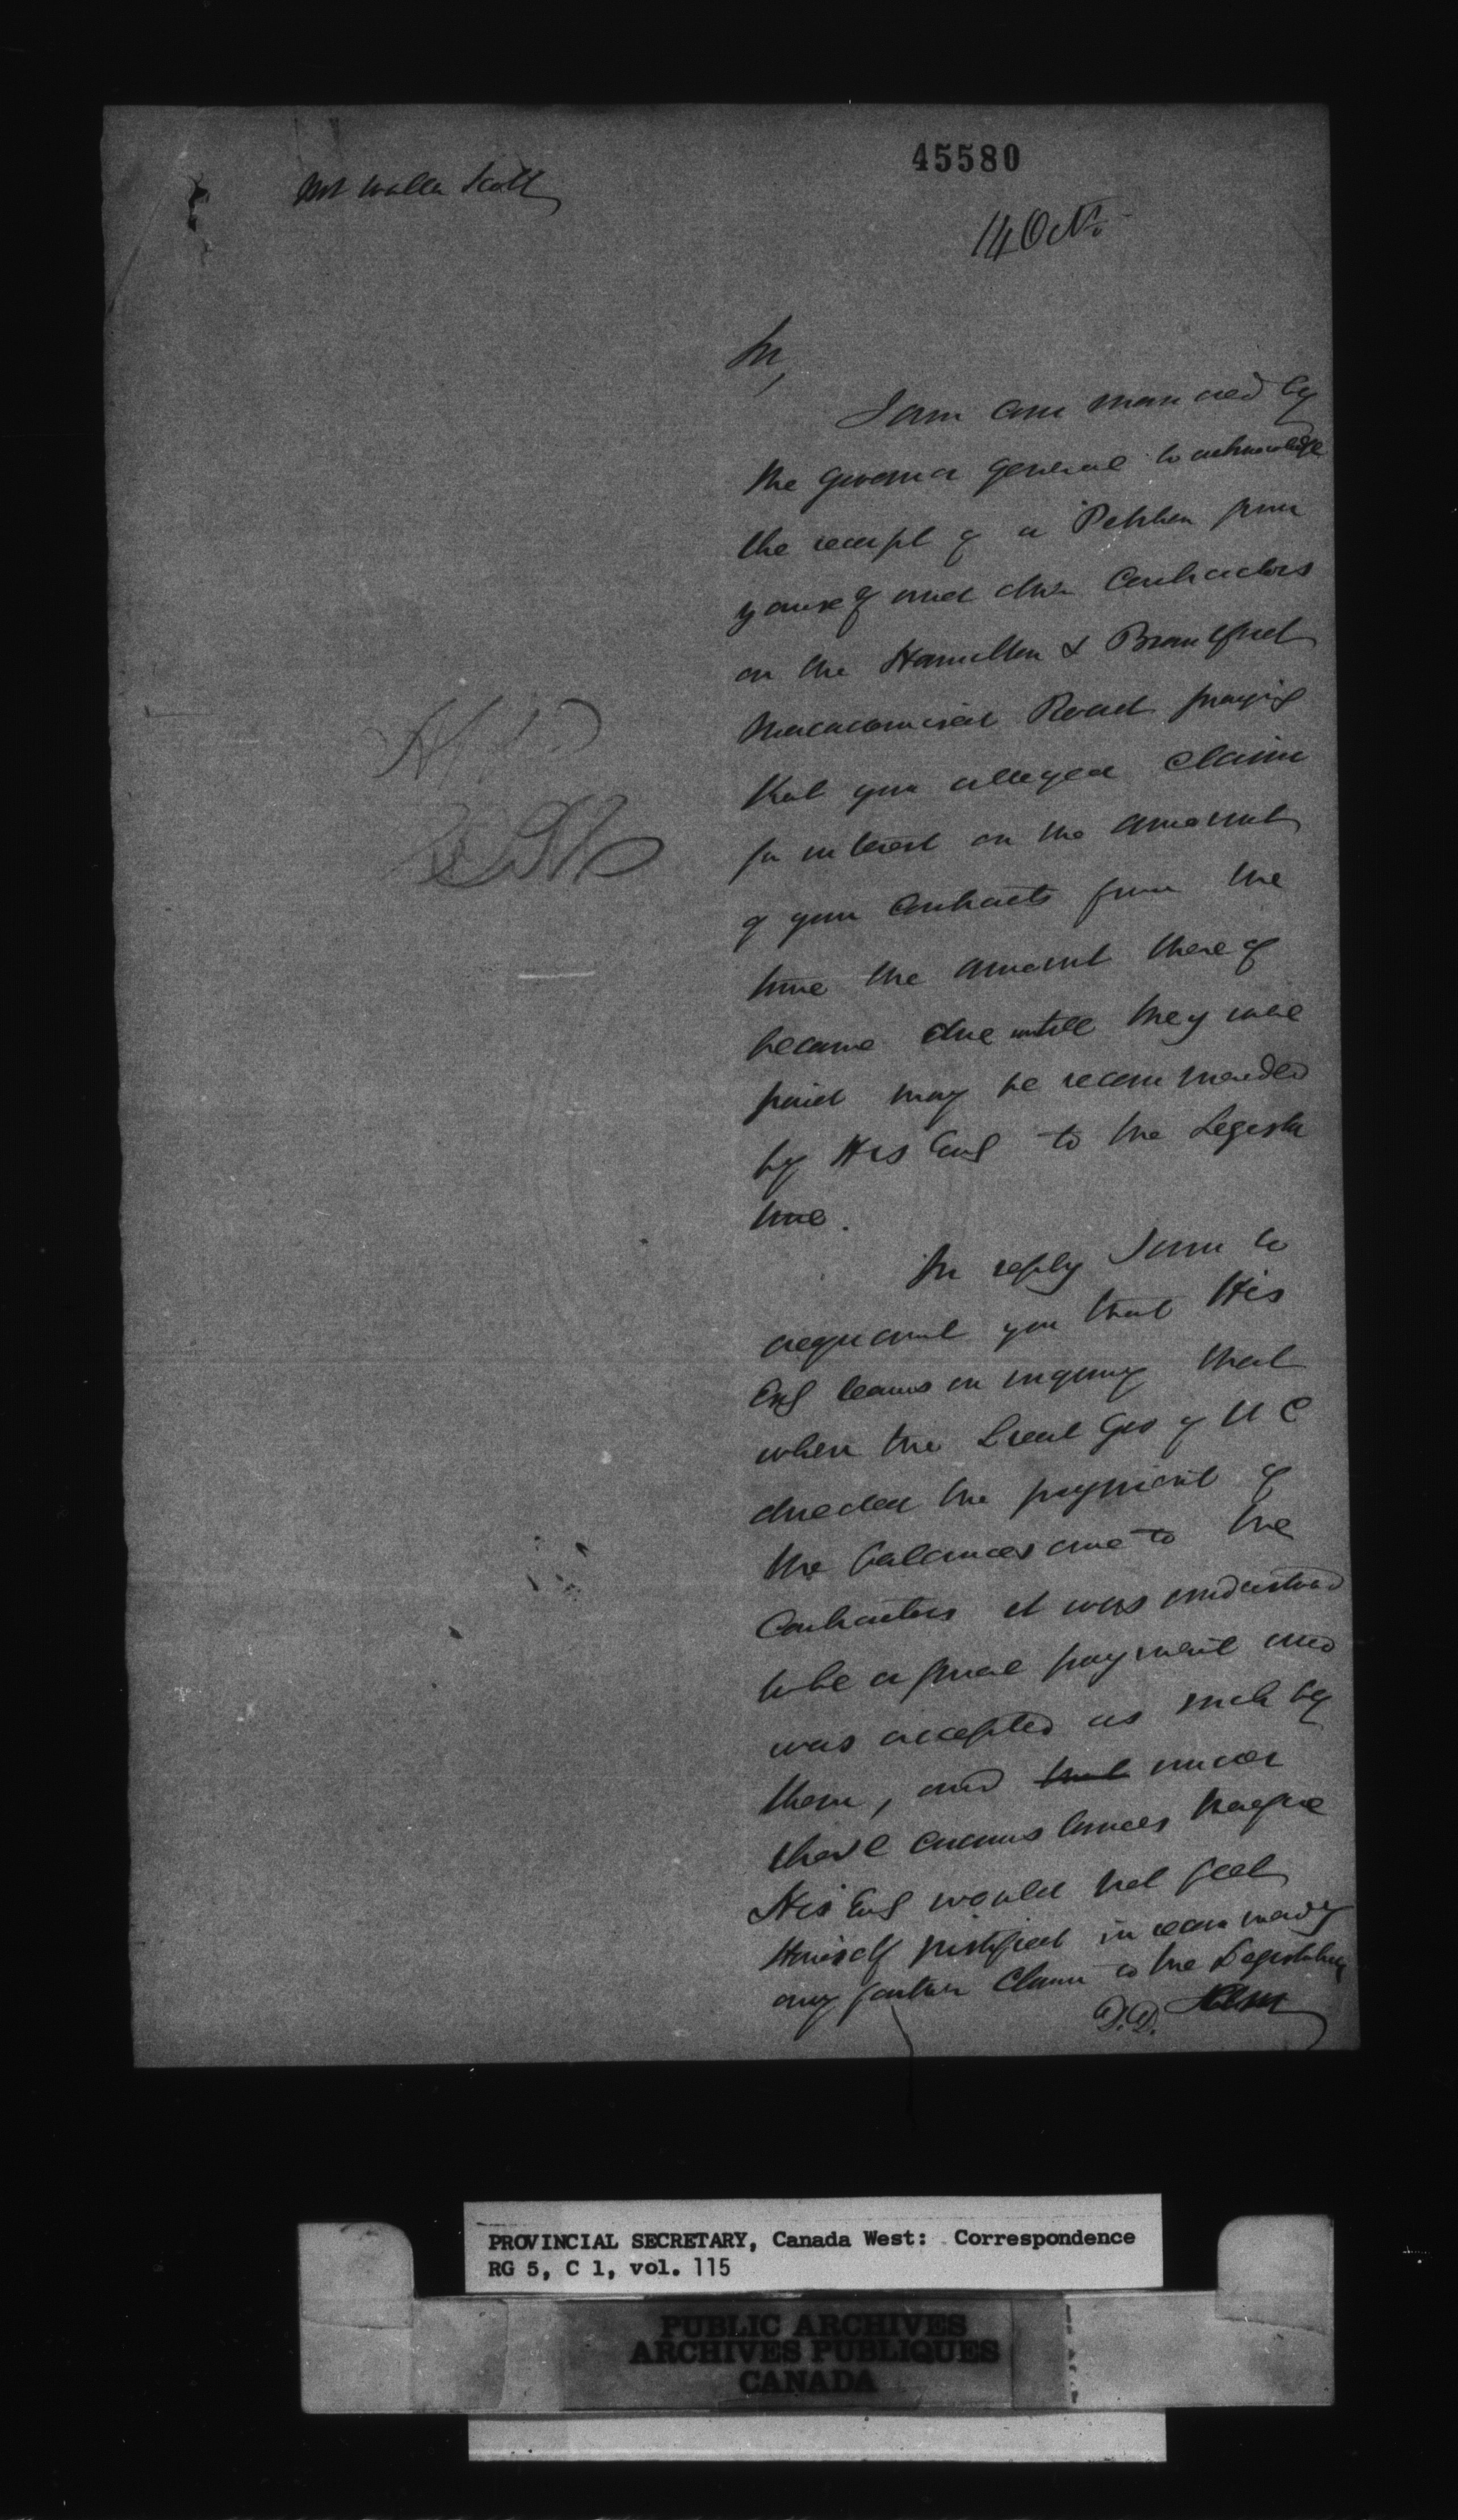 45580
Mr Walter Scott
14 Oct.
Sir,
I am commanded by
the Governor General to acknowledge
the receipt of a Petition from
yourself and other Contractors
on the Hamilton & Brantford
Macadamised Road praying
that your alleged claim
for interest on the amount
of your Contracts from the
time the amount thereof
became due untill they were
paid may be recommended
by His Exc to the Legisla
ture.
In reply I am to
acquaint you that His
Exc learns on inquiry that
when the Local Gov of U C
directed the payment of
the balances due to the
Contractors it was understood
to be a final payment and
was accepted as such by
them, and that under
these circumstances
His Exc would not feel
Himself justified in recommendg
any further Claim to the Legislature
D.D.
PROVINCIAL SECRETARY, Canada West: Correspondence
RG 5, C 1, vol. 115
PUBLIC ARCHIVES
ARCHIVES PUBLIQUES
CANADA